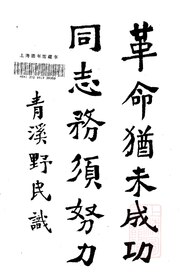 革命猶未成功
同志務須努力
青溪野民識
上海图书馆藏书